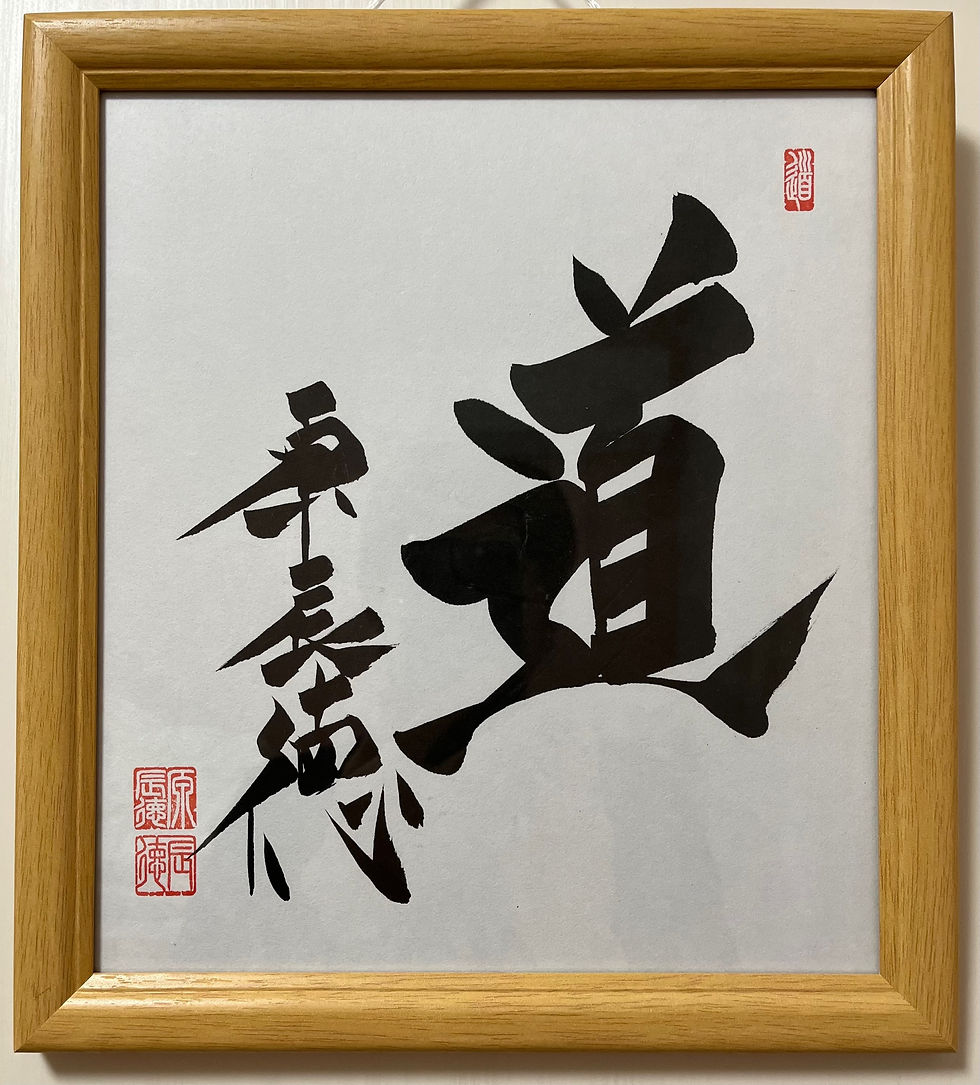 道
道
原辰徳
原辰徳
辰徳